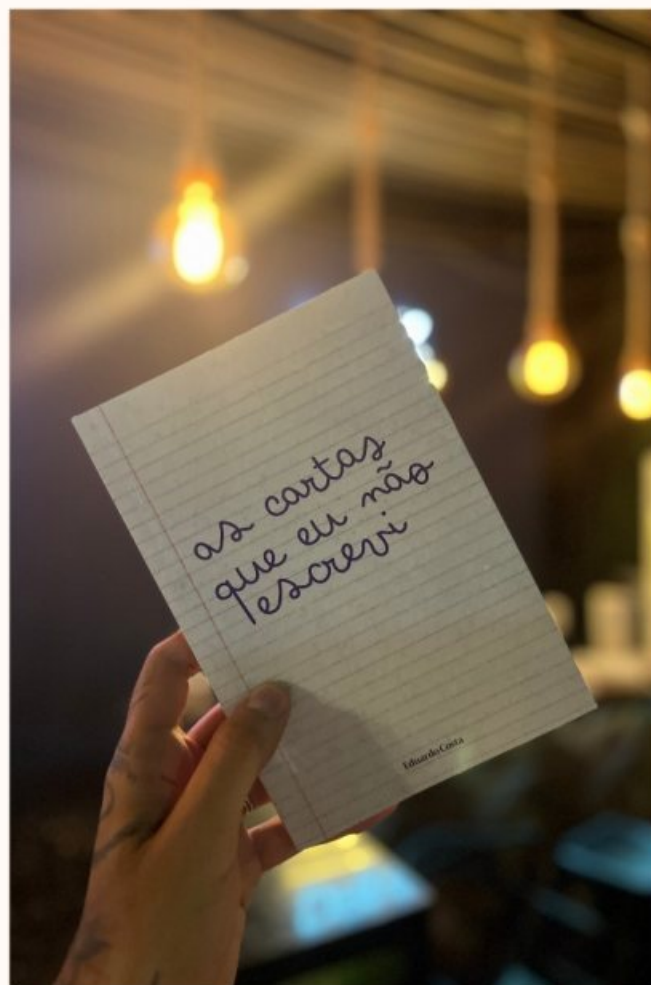 as cartas
que eu não
escrevi
Eduardo Costa